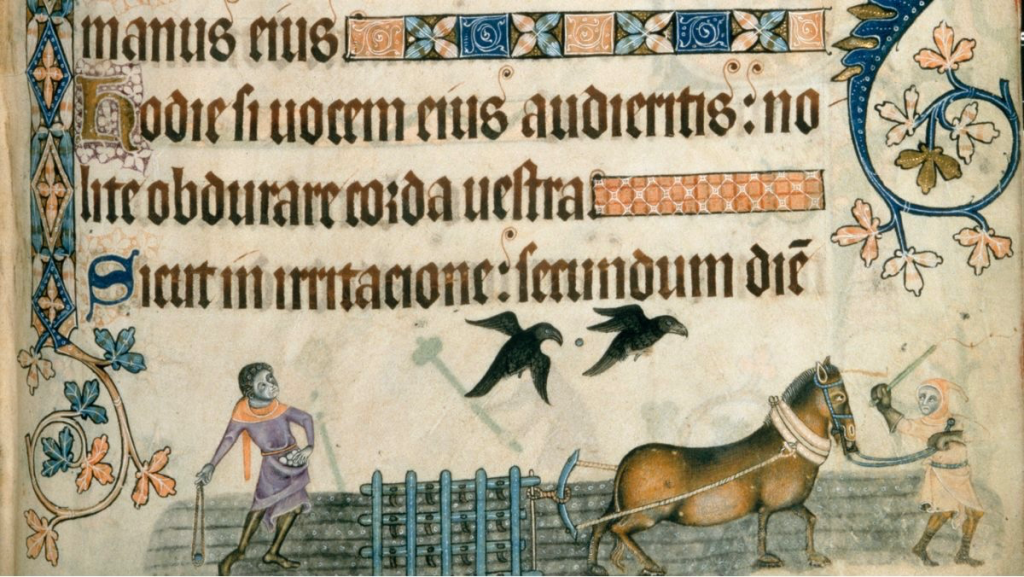 manus eius
Hodie si uocem eius audieritis: no
lite obdurare corda uestra
Sicut in irritacione: secundum diē